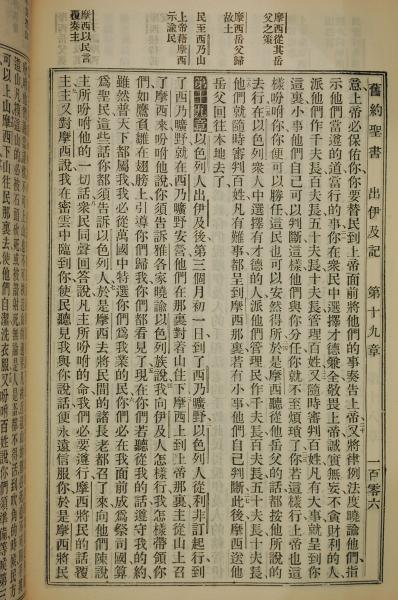 舊約聖書 出伊及記 第十九章 一百零六
意上帝必保佑你你要替民到上帝面前將他們的事奏告上帝又將律例法度曉諭他們指
示他們當遵的道當行的事你在衆民中選擇才德兼全敬畏上帝誠實無妄不貪財利的人
派他們作千夫長百夫長五十夫長十夫長管理百姓又隨時審判百姓凡有大事就呈到你
這裏小事他們自己可以判斷這樣他們與你分任你就不至煩瑣了你若這樣行上帝也這
樣吩咐你你便可以勝任這民也可以安然得所於是摩西聽從他岳父的話都按他所說的
去行在以色列衆人中選擇有才德的人派他們管理民作千夫長百夫長五十夫長十夫長
他們就隨時審判百姓凡有難事都呈到摩西那裏若有小事他們自己判斷此後摩西送他
岳父回往本地去了
第十九章以色列人出伊及後第三個月初一日到了西乃曠野以色列人從利非訂起行到
了西乃曠野就在西乃曠野安營他們在那裏對着山住下摩西上到上帝那裏主從山上召
了摩西來吩咐他說你須告訴雅各家曉諭以色列族說我向伊及人怎樣行我怎樣帶領你
們如鷹負雛在翅膀上引導你們歸我你們都看見了現在你們若聽從我的話遵守我的約
雖然普天下都屬我我必從萬國中特選你們爲我業的民你們必在我面前成爲祭司國算
爲聖民這些話你都須告訴以色列人於是摩西去將民間的諸長老都召了來向他們陳說
主所吩咐他的一切話衆民同聲回答說凡主所吩咐的命我們必要遵行摩西將民的話覆
主主又對摩西說我在密雲中臨到你使民聽見我與你說話便永遠信服你於是摩西將民
摩西從其岳
父之策
摩西岳父歸
故土
民至西乃山
上帝藉摩西
示諭民
摩西以民言
覆奏主
可以上山摩西下山往民那裏去使他們自潔洗衣服又吩咐百姓說你們須準備等候第三